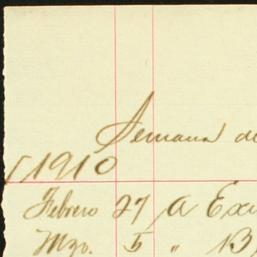 Semana de
1910
Febrero 27 A Exi
Mzo. 5 " 13